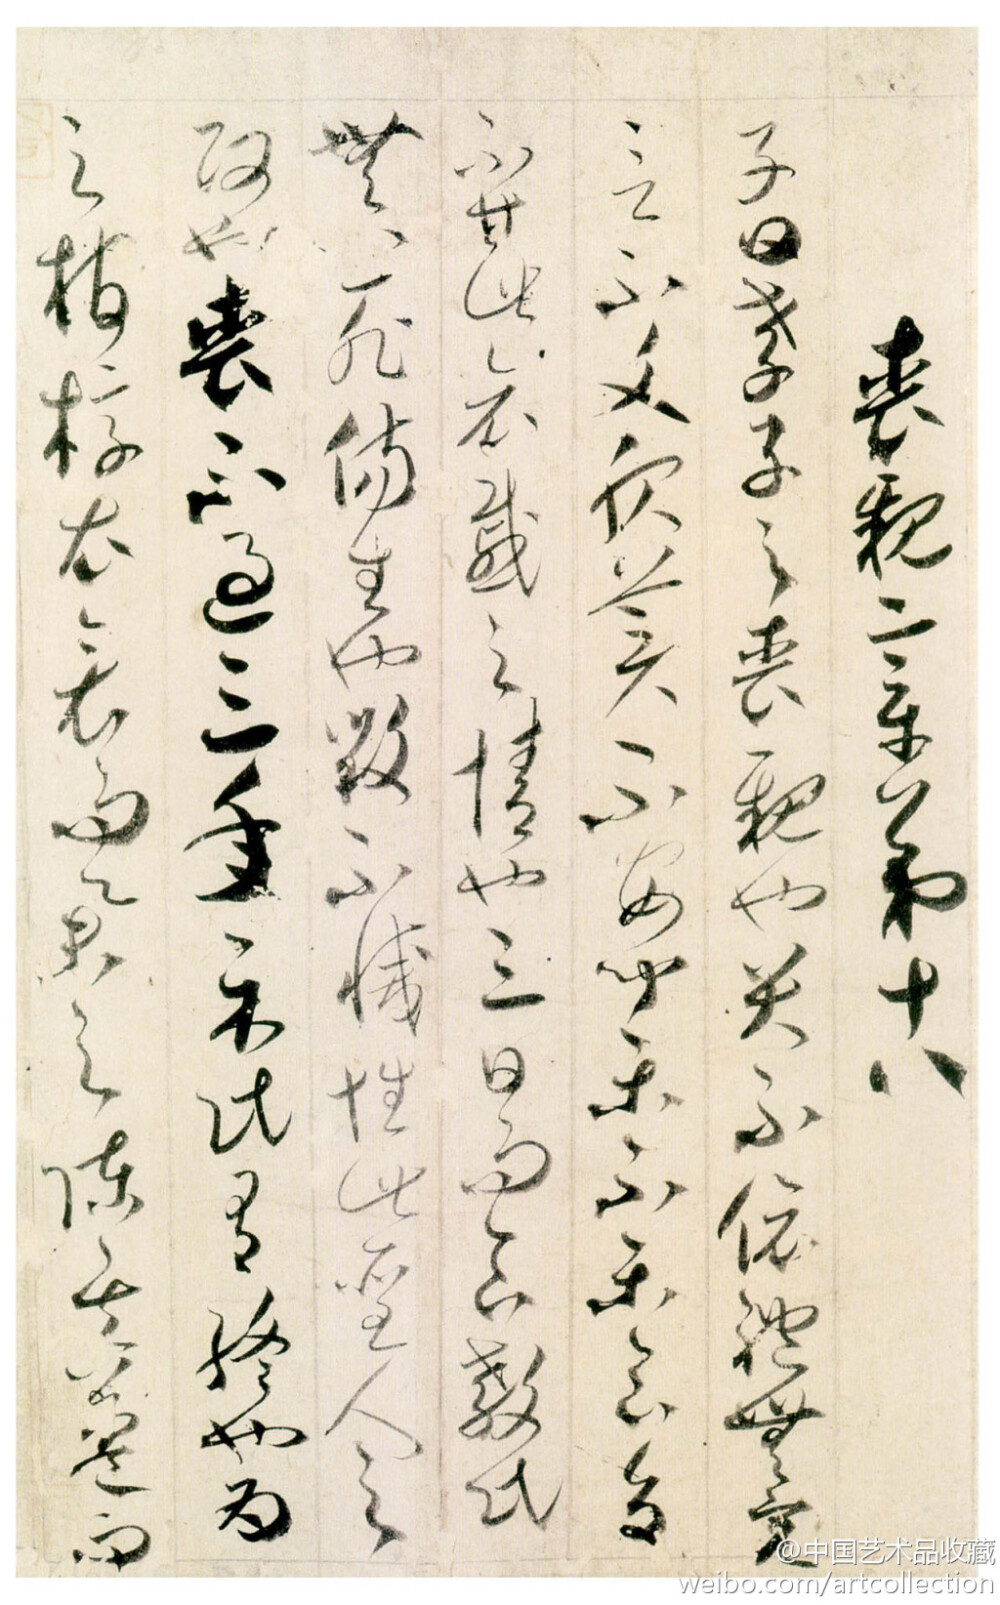 喪親章第十八
子曰孝子之喪親也哭不依禮無容
言不文服美不安聞樂不樂食旨
不甘此哀慼之情也三日而食教民
無以死傷生也毀不滅性此聖人之
政也喪不過三年示民有終也為
之棺椁衣衾而舉之陳其簠簋而
@中国艺术品收藏
weibo.com/artcollection